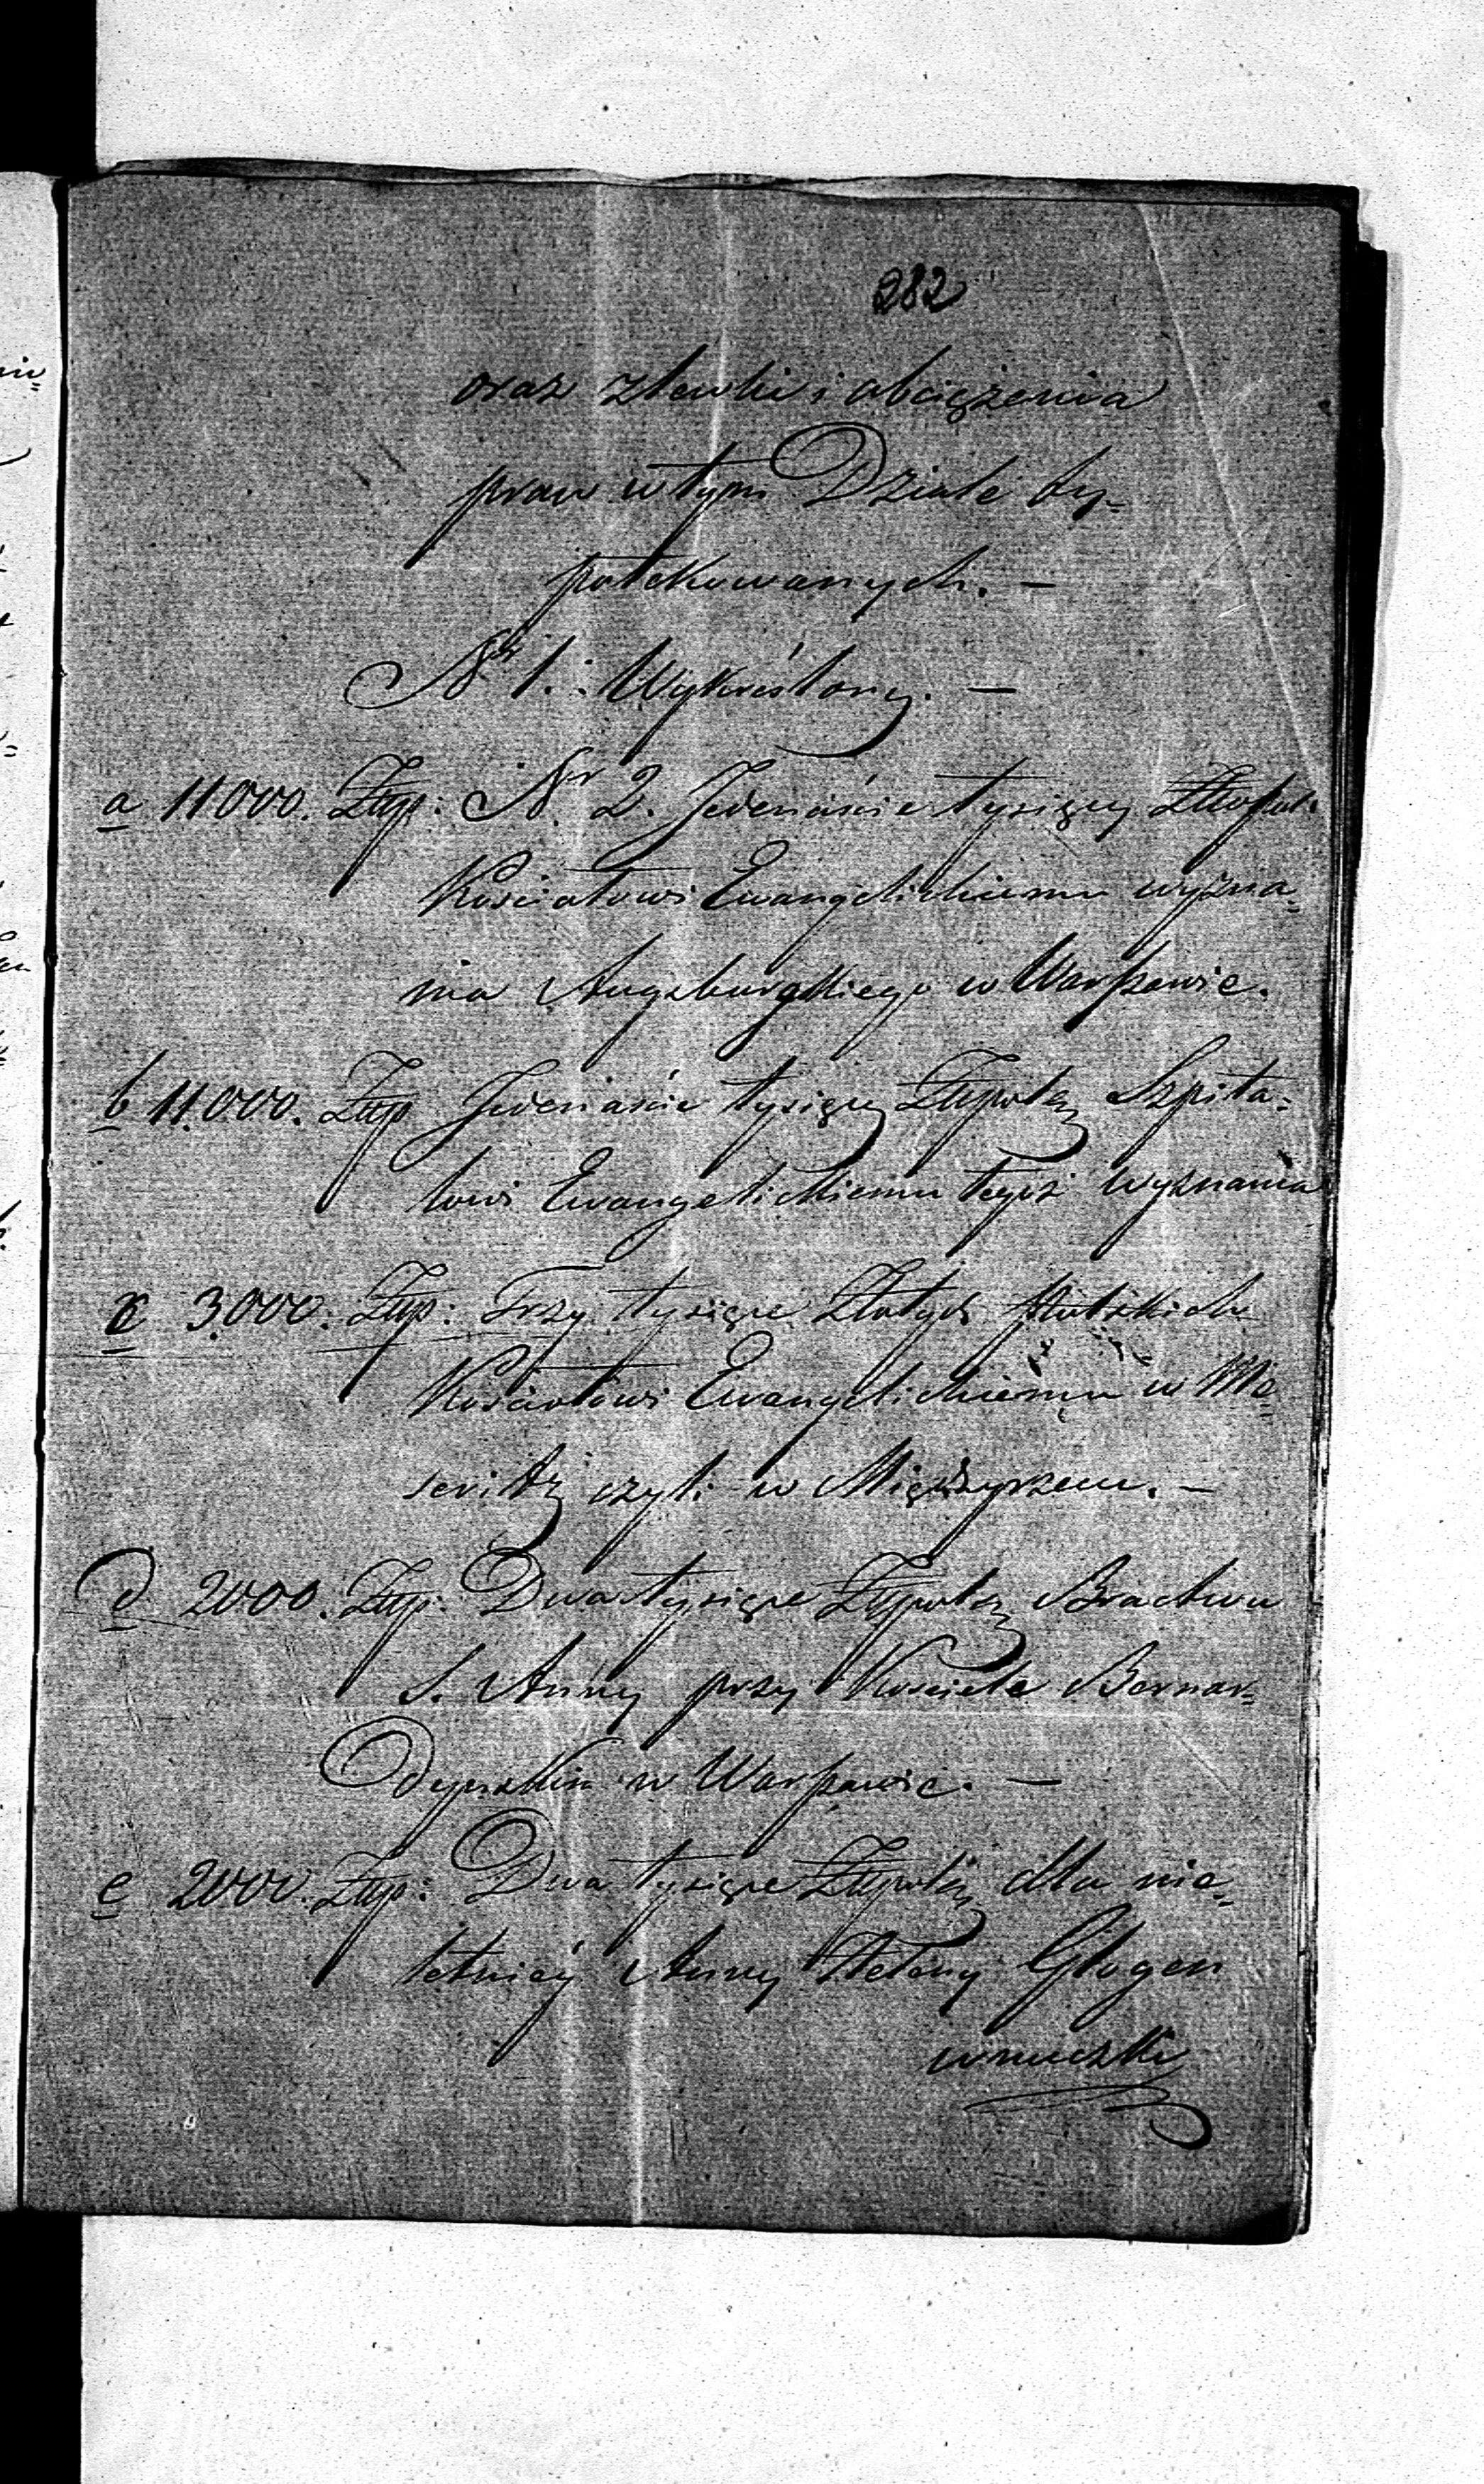 282
oraz zlewki i obciążenia
praw w tym Dziale hy=
potekowanych. —
Nr 1. Wykréślony. —
a 11000. Złłp: Nr 2. Jedenaście tysięcy
Kościołowi Ewangelickiemu wyzna=
nia Augzburgskiego w Warszawie.
b 11.000. Złłp Jedenaście tysięcy Złłpols Szpita=
lowi Ewangelickiemu tegoż wyznania
c 3,000. Złłp: Trzy tysiące Złotych Polskich
Kościołowi Ewangelickiemu w Me=
seritz czyli w Międzyrzecu. —
d 2000. Złłp: Dwa tysiące Złłpols Bractwu
S. Anny przy Kościele Bernar=
dyńskim w Warszawie. —
e 2000. Złłp: Dwa tysiące Złłpols dla nie=
letniéy Anny Heleny Glogen
wnuczki